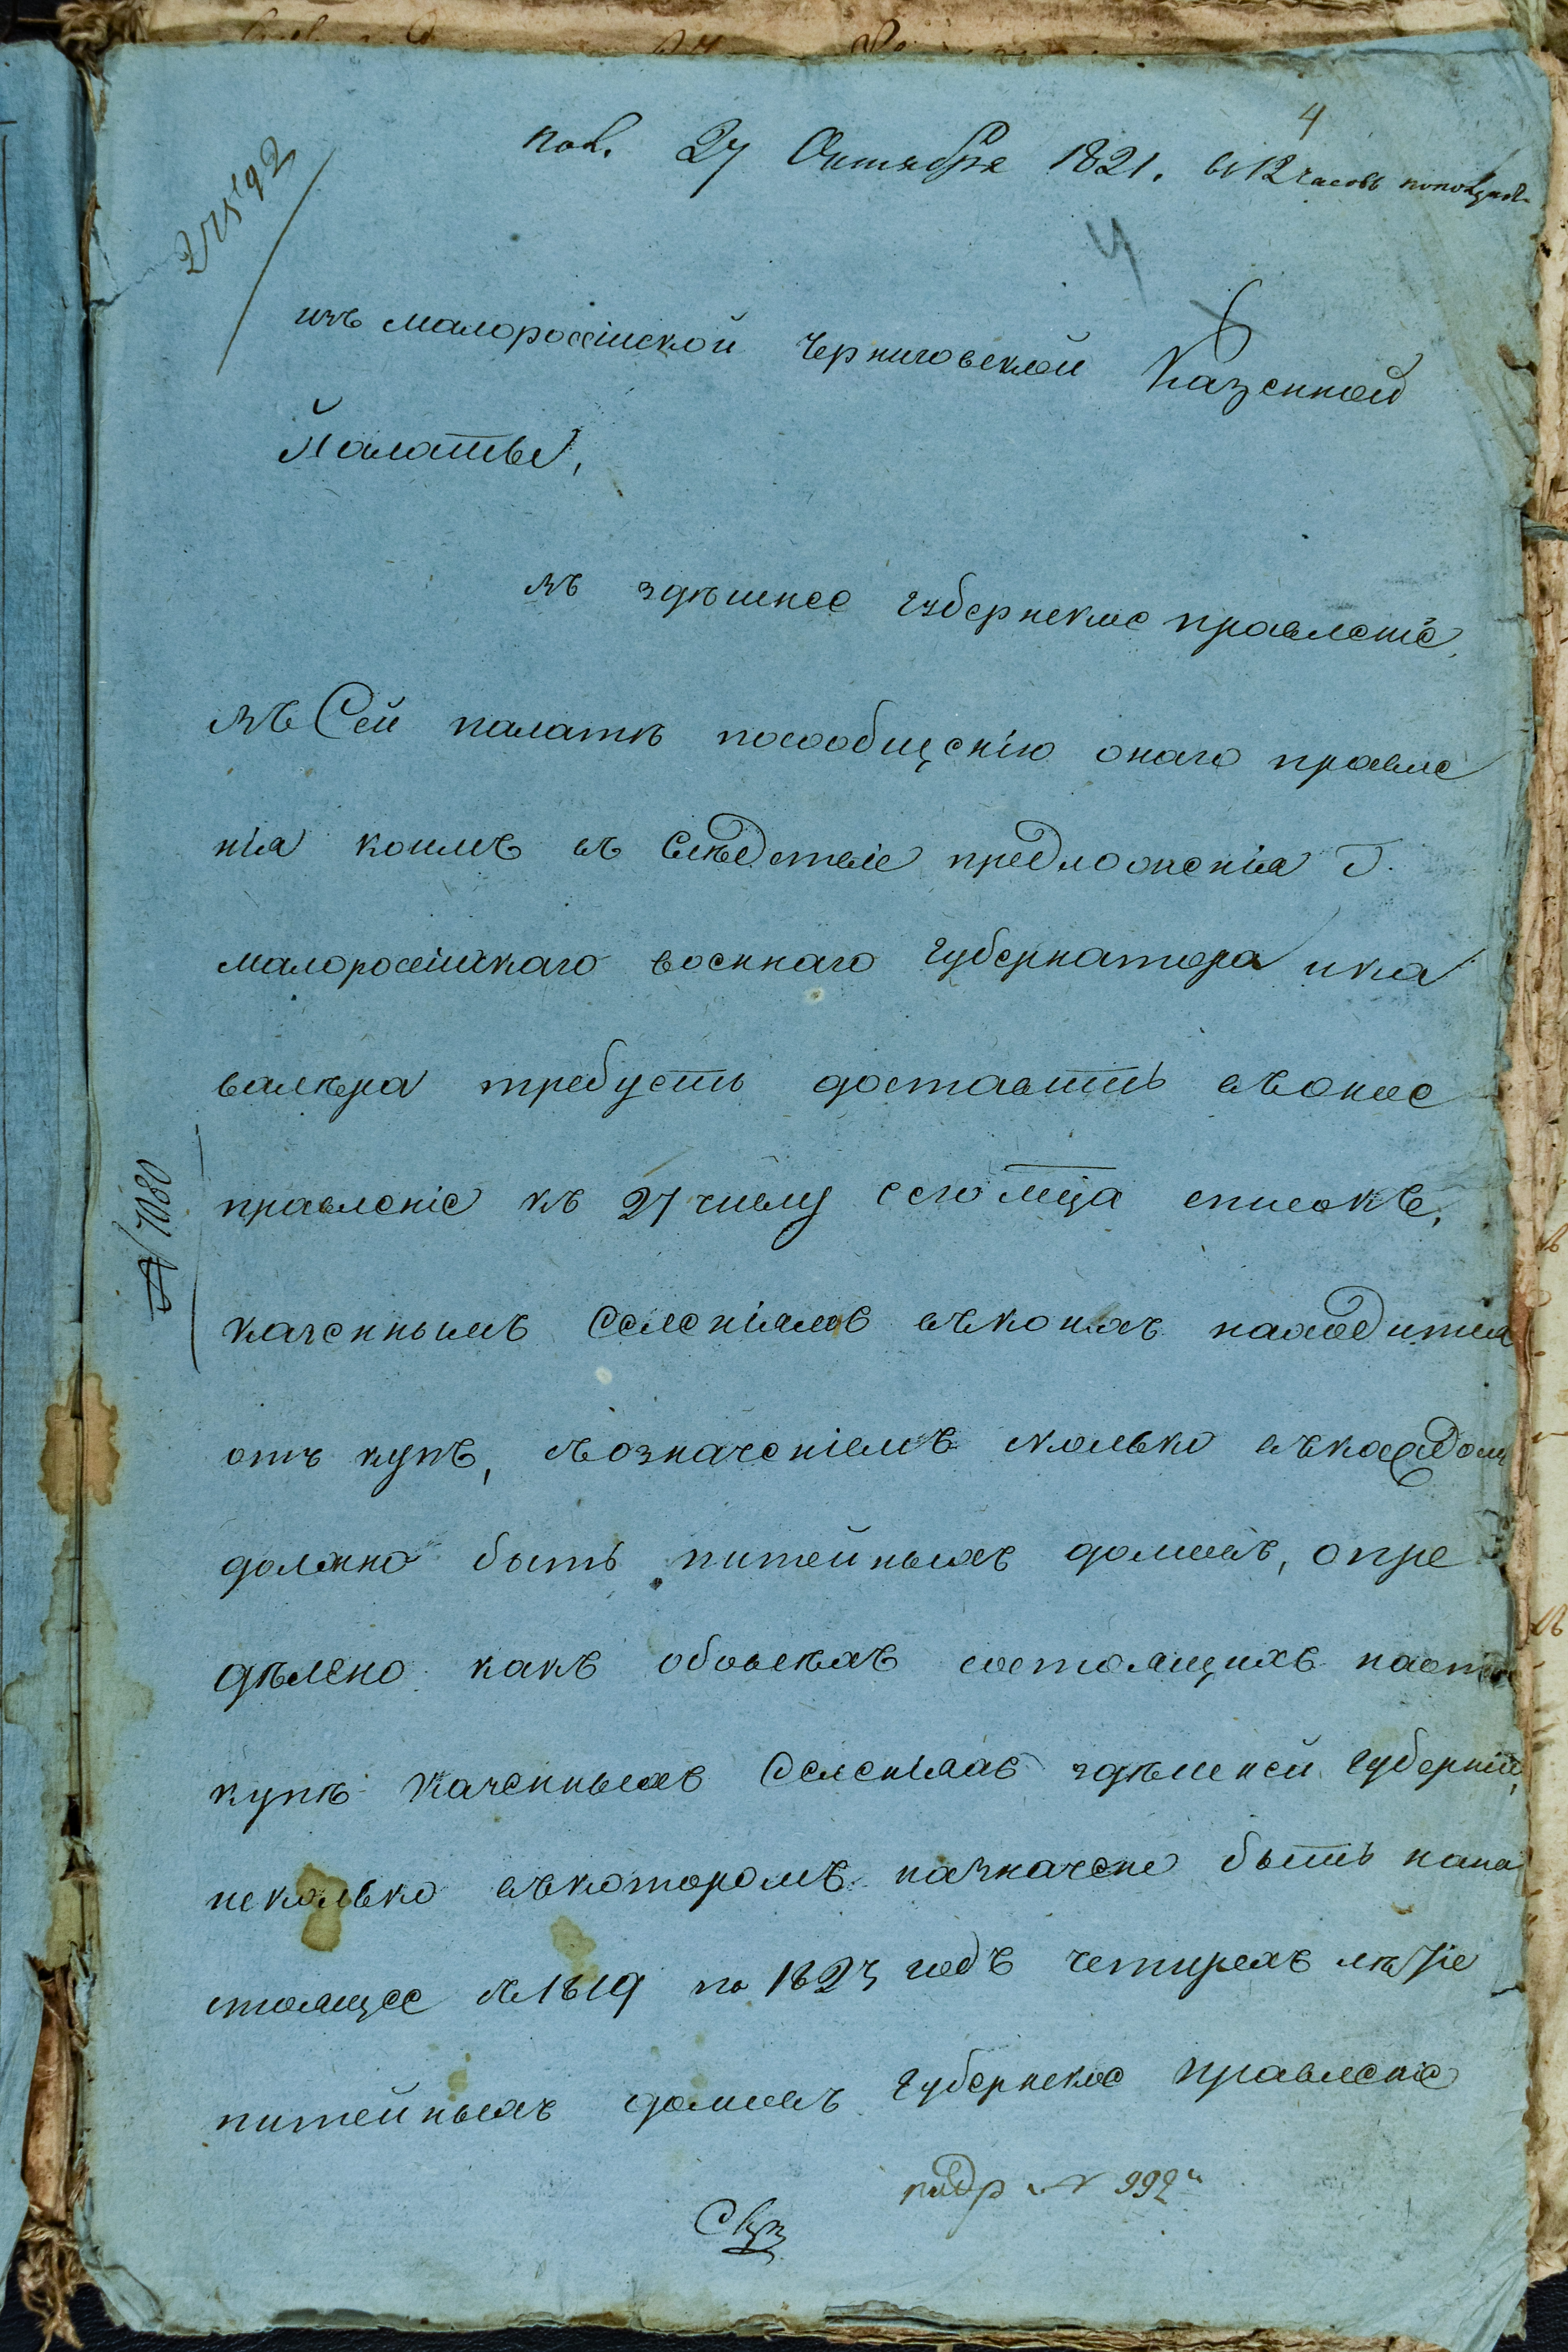 4
27592
пол. 27 Октября 1821. в 12 часовъ
4
изъ малороссійской Черниговской Казенной
Палаты,
въ здѣшнее губернское правленіе,
въ Сей палатѣ посообщенію онаго правле
нія коимъ въ Слѣдствіе предложенія Г.
малороссійскаго военнаго губернатора ика
валѣра требуетъ доставить въоное
правленіе къ 27 числу сего мца списокъ,
казеннымъ Селеніямъ вѣкоихъ находится
отъ купъ, съозначеніемъ сколько вѣкаждомъ
должно быть питейныхъ домовъ, опре
дѣлено какъ обовсѣхъ состоящихъ наот
купѣ казенныхъ Селеніяхъ здѣшней губерніи,
исколько въкоторомъ назначено быть нана
стоящее с 1819 по 1823 годъ четырехъ лѣтіе
питейныхъ домовъ губернское правленіе
№ 7080
№ 992